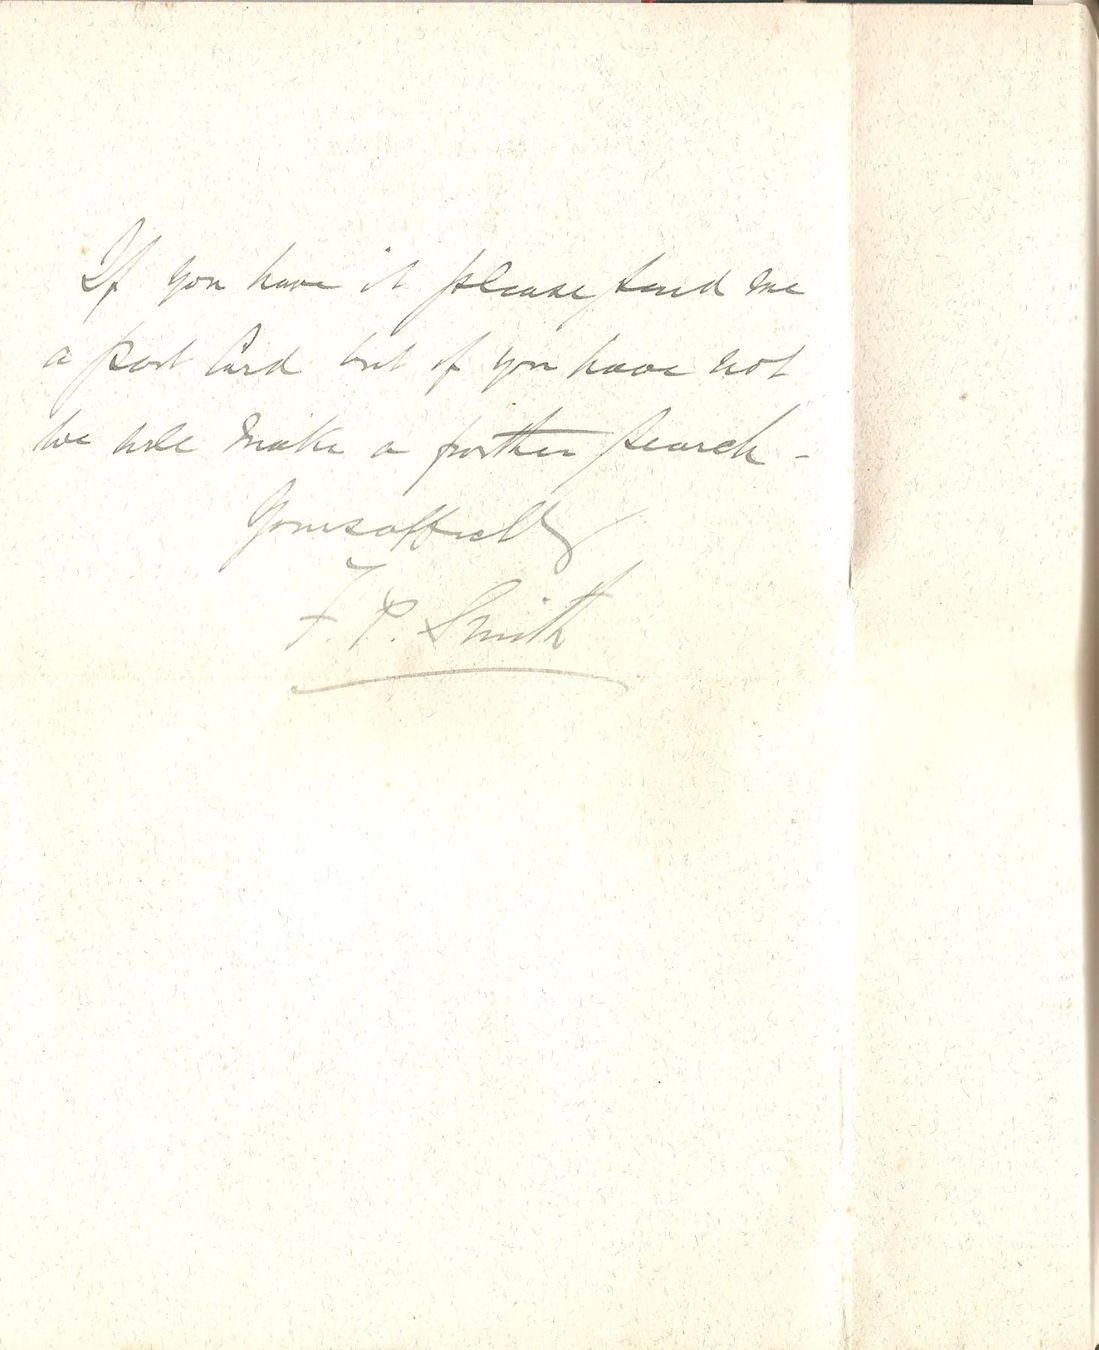 If you have it please send me
a post Card but if you have not
we will make a further search -
Yours officially
F. P. Smith